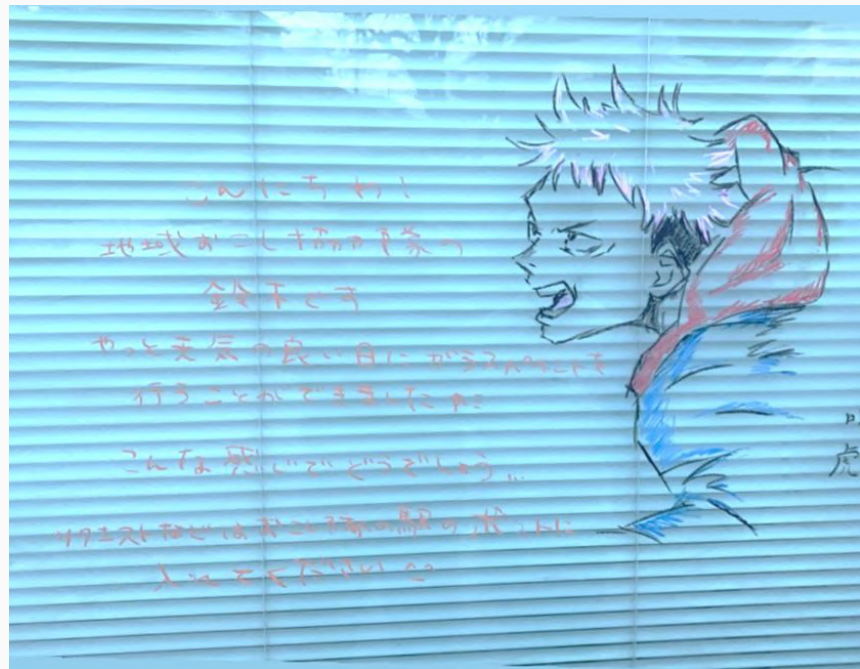 こんにちわ!
地域おこし協力隊の
鈴木です
やっと天気の良い日にガラスペイントを
行うことができました
こんな感じでどうでしょう…
リクエストなどはおこし隊の駅のポストに
入れてください
虎